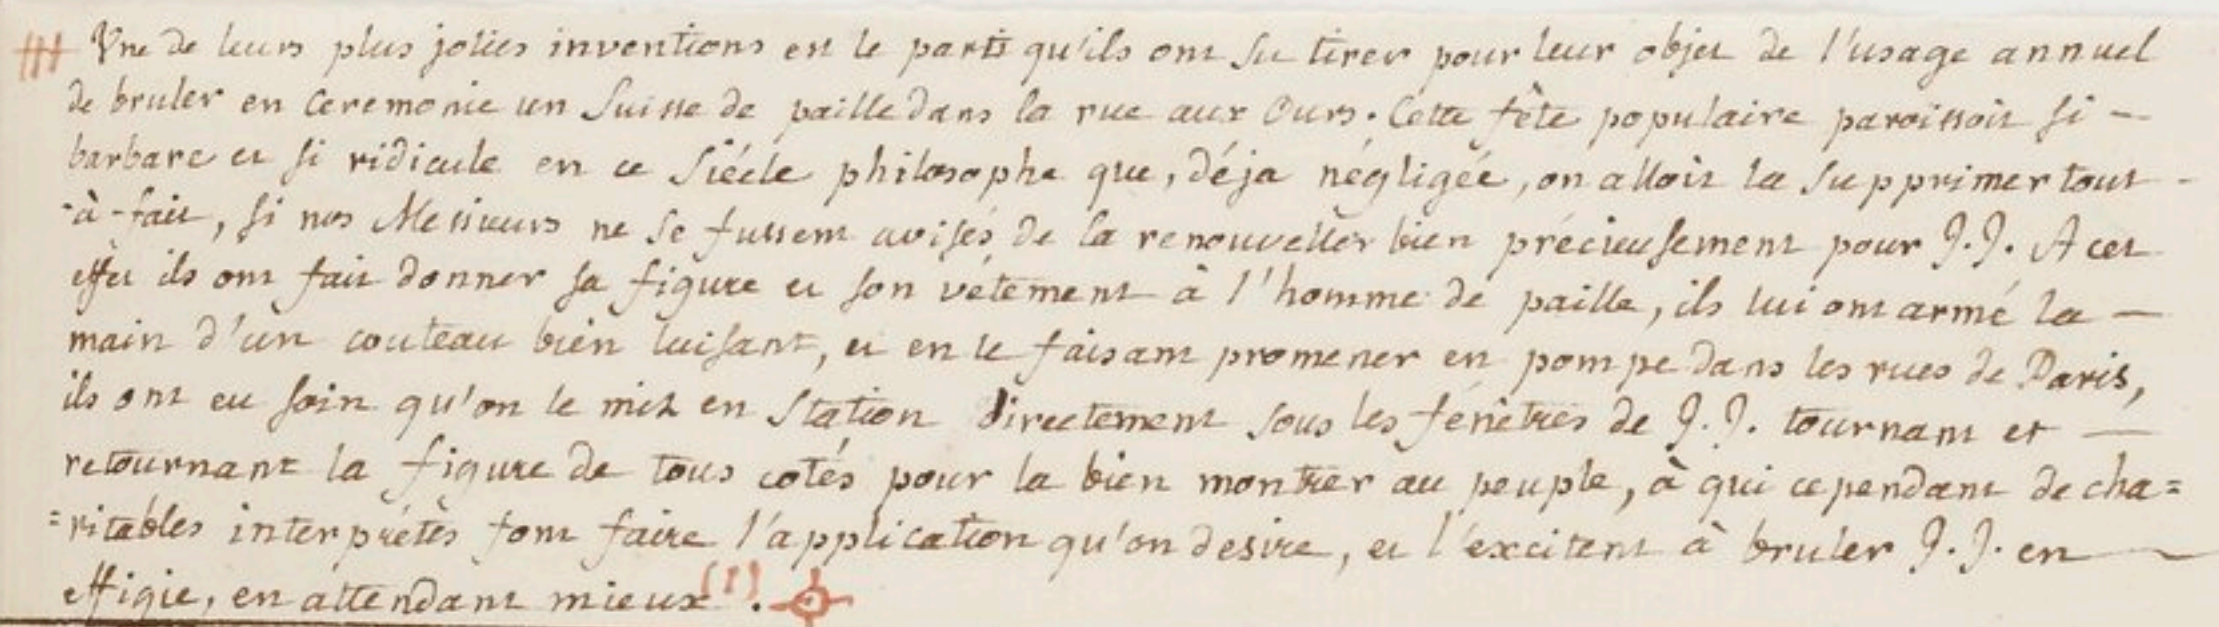 Une de leurs plus jolies inventions est le parti qu'ils ont su tirer pour leur objet de l'usage annuel
de bruler en ceremonie un Suisse de paille dans la rue aux Ours. Cette fête populaire paroissoit si —
barbare et si ridicule en ce siécle philosophe que, déja négligée, on alloit la supprimer tout -
-à-fait, si nos Messieurs ne se fussent avisés de la renouveller bien précieusement pour J.J. A cet
effet ils ont fait donner sa figure et son vétement à l'homme de paille, ils lui ont armé la —
main d'un couteau bien luisant, et en le faisant promener en pompe dans les rues de Paris,
ils ont eu soin qu'on le mit en station directement sous les fénétres de J.J. tournant et —
retournant la figure de tous cotés pour la bien montrer au peuple, à qui cependant de cha=
=ritables interprétes font faire l'application qu'on desire, et l'excitent à bruler J.J. en —
effigie, en attendant mieux (1).